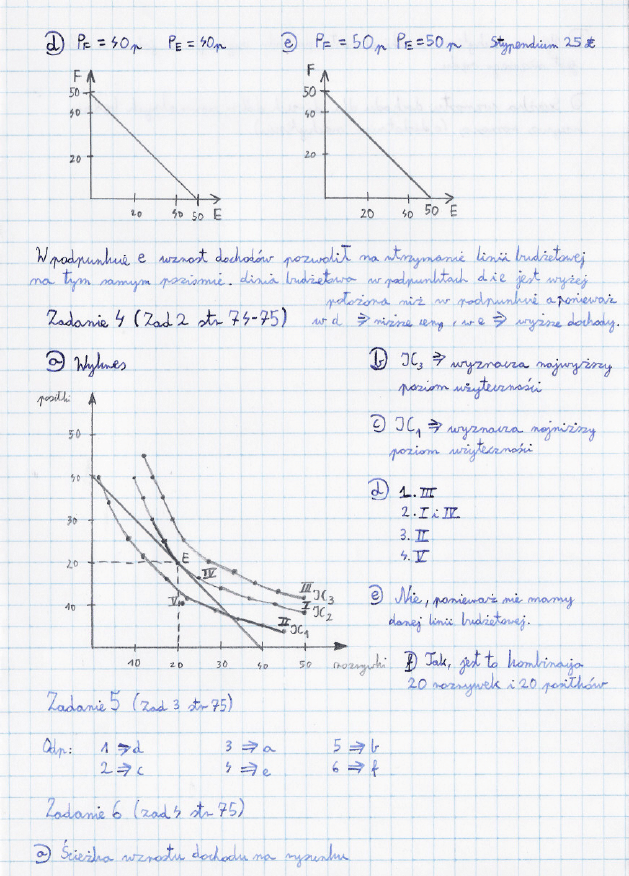 d) PF = 40p PE = 40p e) PF = 50p PE = 50p Stypendium 25 zł
F F
50 50
40 40
20 20
20 40 50 E 20 40 50 E
W podpunkcie e wzrost dochodów pozwolił na utrzymanie linii budżetowej
na tym samym poziomie. Linia budżetowa w podpunktach d i e jest wyżej
położona niż w podpunkcie a ponieważ
Zadanie 4 (Zad 2 str 74-75) w d ⇒ niższe ceny, w e ⇒ wyższe dochody.
a) Wykres
b) IC3 ⇒ wyznacza najwyższy
poziom użyteczności
posiłki
c) IC1 ⇒ wyznacza najniższy
poziom użyteczności
50
40
30
20
10
E
IV
V
III IC3
I IC2
II IC1
10 20 30 40 50 rozrywki
d) 1. III
2. I i IV
3. II
4. V
e) Nie, ponieważ nie mamy
danej linii budżetowej.
f) Tak, jest to kombinacja
20 rozrywek i 20 posiłków
Zadanie 5 (Zad 3 str 75)
Odp: 1 ⇒ d 3 ⇒ a 5 ⇒ b
2 ⇒ c 4 ⇒ e 6 ⇒ f
Zadanie 6 (zad 4 str 75)
a) Ścieżka wzrostu dochodu na rysunku